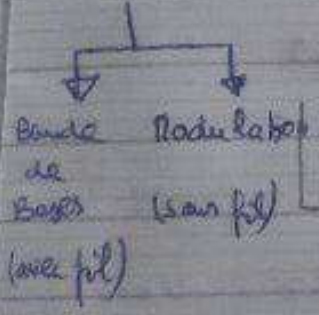 Bande
de
Bases
(avec fil)
Modulation
(sans fil)